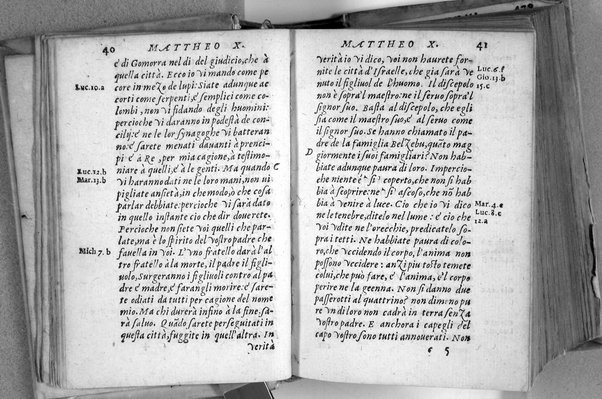 40 MATTHEO X.
è di Gomorra nel dì del giudicio, che à
quella città. Ecco io vi mando come pe
Luc. 10. a
core in mezo de lupi: Siate adunque ac
corti come serpenti, è semplici come co-
lombi, non vi fidando degli huomini:
percioche vi daranno in podestà de con-
cilij: è ne le lor synagoghe vi batteran
no: è sarete menati dauanti à prenci-
pi è à Re, per mia cagione, à testimo-
Luc. 12. b
niare à quelli, è à le genti. Ma quando
C
Mar. 13. b
vi haranno dati ne le loro mani, non vi
pigliate ansietà, in che modo, ò che cosa
parlar debbiate: percioche vi sarà dato
in quello instante ciò che dir douerete.
Percioche non siete voi quelli che par-
late, ma è lo spirito del vostro padre che
Mich 7. b
fauella in voi. L'vno fratello darà l'al
tro fratello à la morte, il padre il figli-
uolo, Surgeranno i figliuoli contro al pa
dre è madre, è farangli morire. è sare-
te odiati da tutti per cagione del nome
mio. Ma chi durerà infino à la fine, sa-
rà saluo. Quãdo sarete perseguitati in
questa città, fuggite in quell'altra. In
verità
MATTHEO X. 41
verità io vi dico, voi non haurete for-
nite le città d'Israelle, che già sarà ve
Luc. 6. f
nuto il figliuol de l'huomo. Il discepolo
Gio. 13. b
non è sopra'l maestro: ne il seruo sopra'l
15. c
signor suo. Basta al discepolo, che egli
sia come il maestro suo, è al seruo come
il signor suo. Se hanno chiamato il pa-
dre de la famiglia Belzebu, quãto mag
D
giormente i suoi famigliari? Non hab-
biate adunque paura di loro. Impercio-
che niente è sì coperto, che non si hab
bia à scoprire: ne sì ascoso, che nõ hab
bia à venire à luce. Ciò che io vi dico
Mar. 4. c
ne le tenebre, ditelo nel lume: è ciò che
Luc. 8. c
voi vdite ne l'orecchie, predicatelo so-
12. a
pra i tetti. Ne habbiate paura di colo-
ro, che vccidendo il corpo, l'anima non
possono vccidere: anzi più tosto temete
colui, che può fare, è l'anima, è'l corpo
perire ne la geenna. Non si danno due
passerotti al quattrino? non dimeno pu
re vn di loro non cadrà in terra senza
vostro padre. E anchora i capegli del
capo vostro sono tutti annouerati. Non
c 5